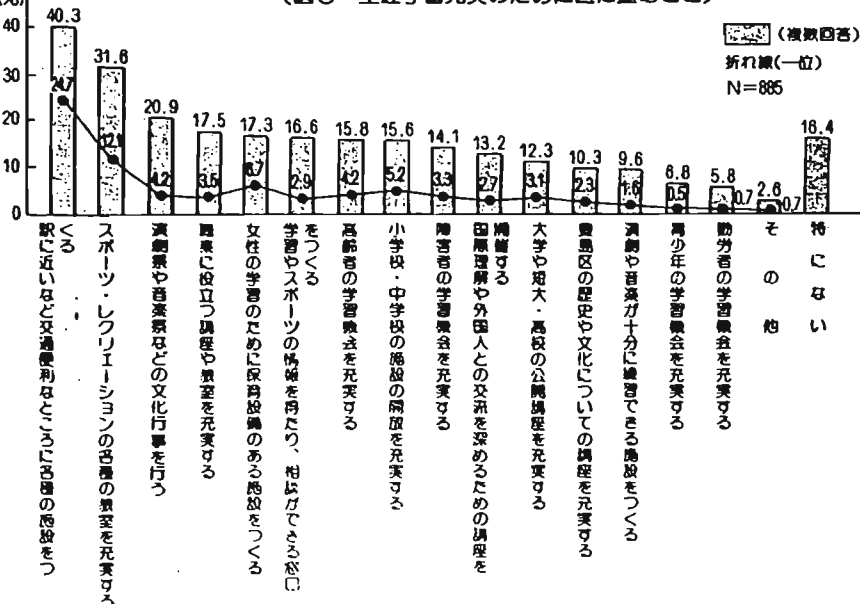 40.3
(複数回答)
折れ線(一位)
N=885
40
30
20
10
0
31.6
20.9
17.5
17.3
16.6
15.8
15.6
14.1
13.2
12.3
10.3
9.6
6.8
5.8
2.6
16.4
24.7
12.1
4.2
3.5
6.7
2.9
4.2
5.2
3.3
2.7
3.1
2.3
1.6
0.5
0.7
0.7
駅に近いなど交通便利なところに各種の施設をつ
くる
スポーツ・レクリエーションの各種の教室を充実する
演劇祭や音楽祭などの文化行事を行う
に役立つ講座や教室を充実する
女性の学習のために保育設備のある施設をつくる
学習やスポーツの情報を得たり、相談ができる窓口
をつくる
高齢者の学習機会を充実する
小学校・中学校の施設の開放を充実する
障害者の学習機会を充実する
国際理解や外国人との交流を深めるための講座を
開催する
大学や短大・高校の公開講座を充実する
豊島区の歴史や文化についての講座を充実する
演劇や音楽が十分に練習できる施設をつくる
青少年の学習機会を充実する
勤労者の学習機会を充実する
その他
特にない